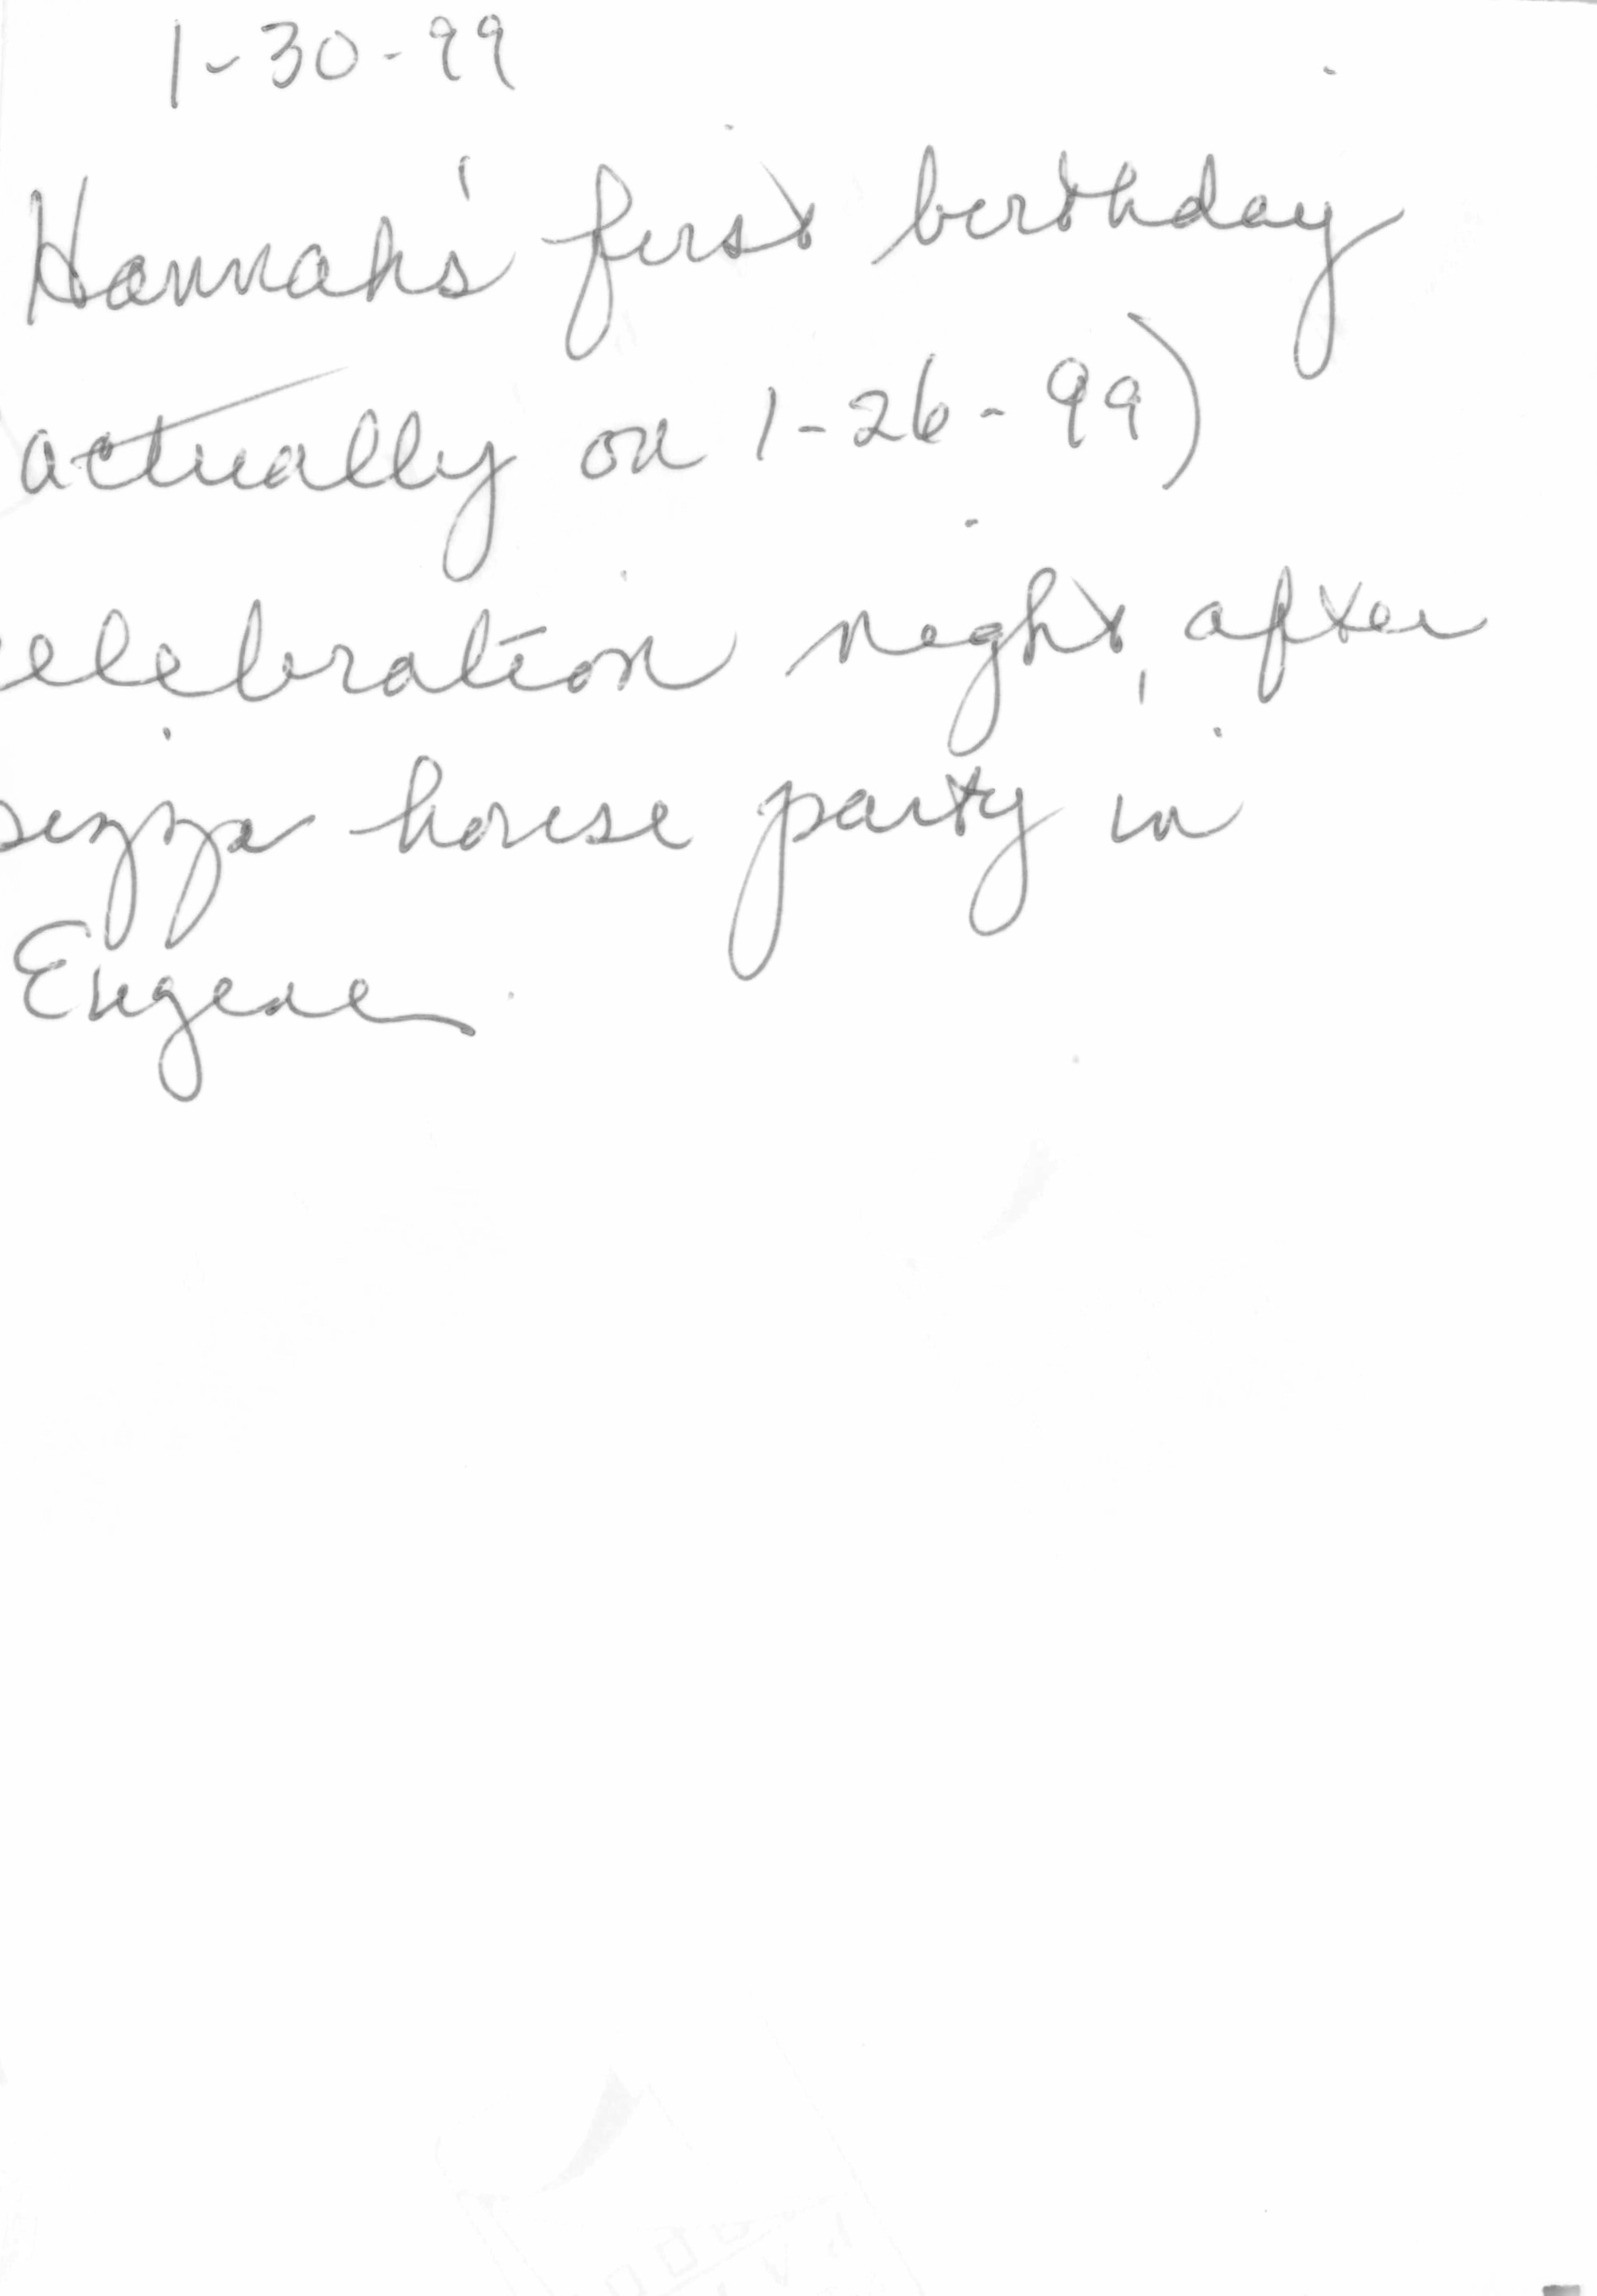 1-30-99
Hannah's first birthday
actually on 1-26-99)
elebration night, after
pizza house party in
Eugene